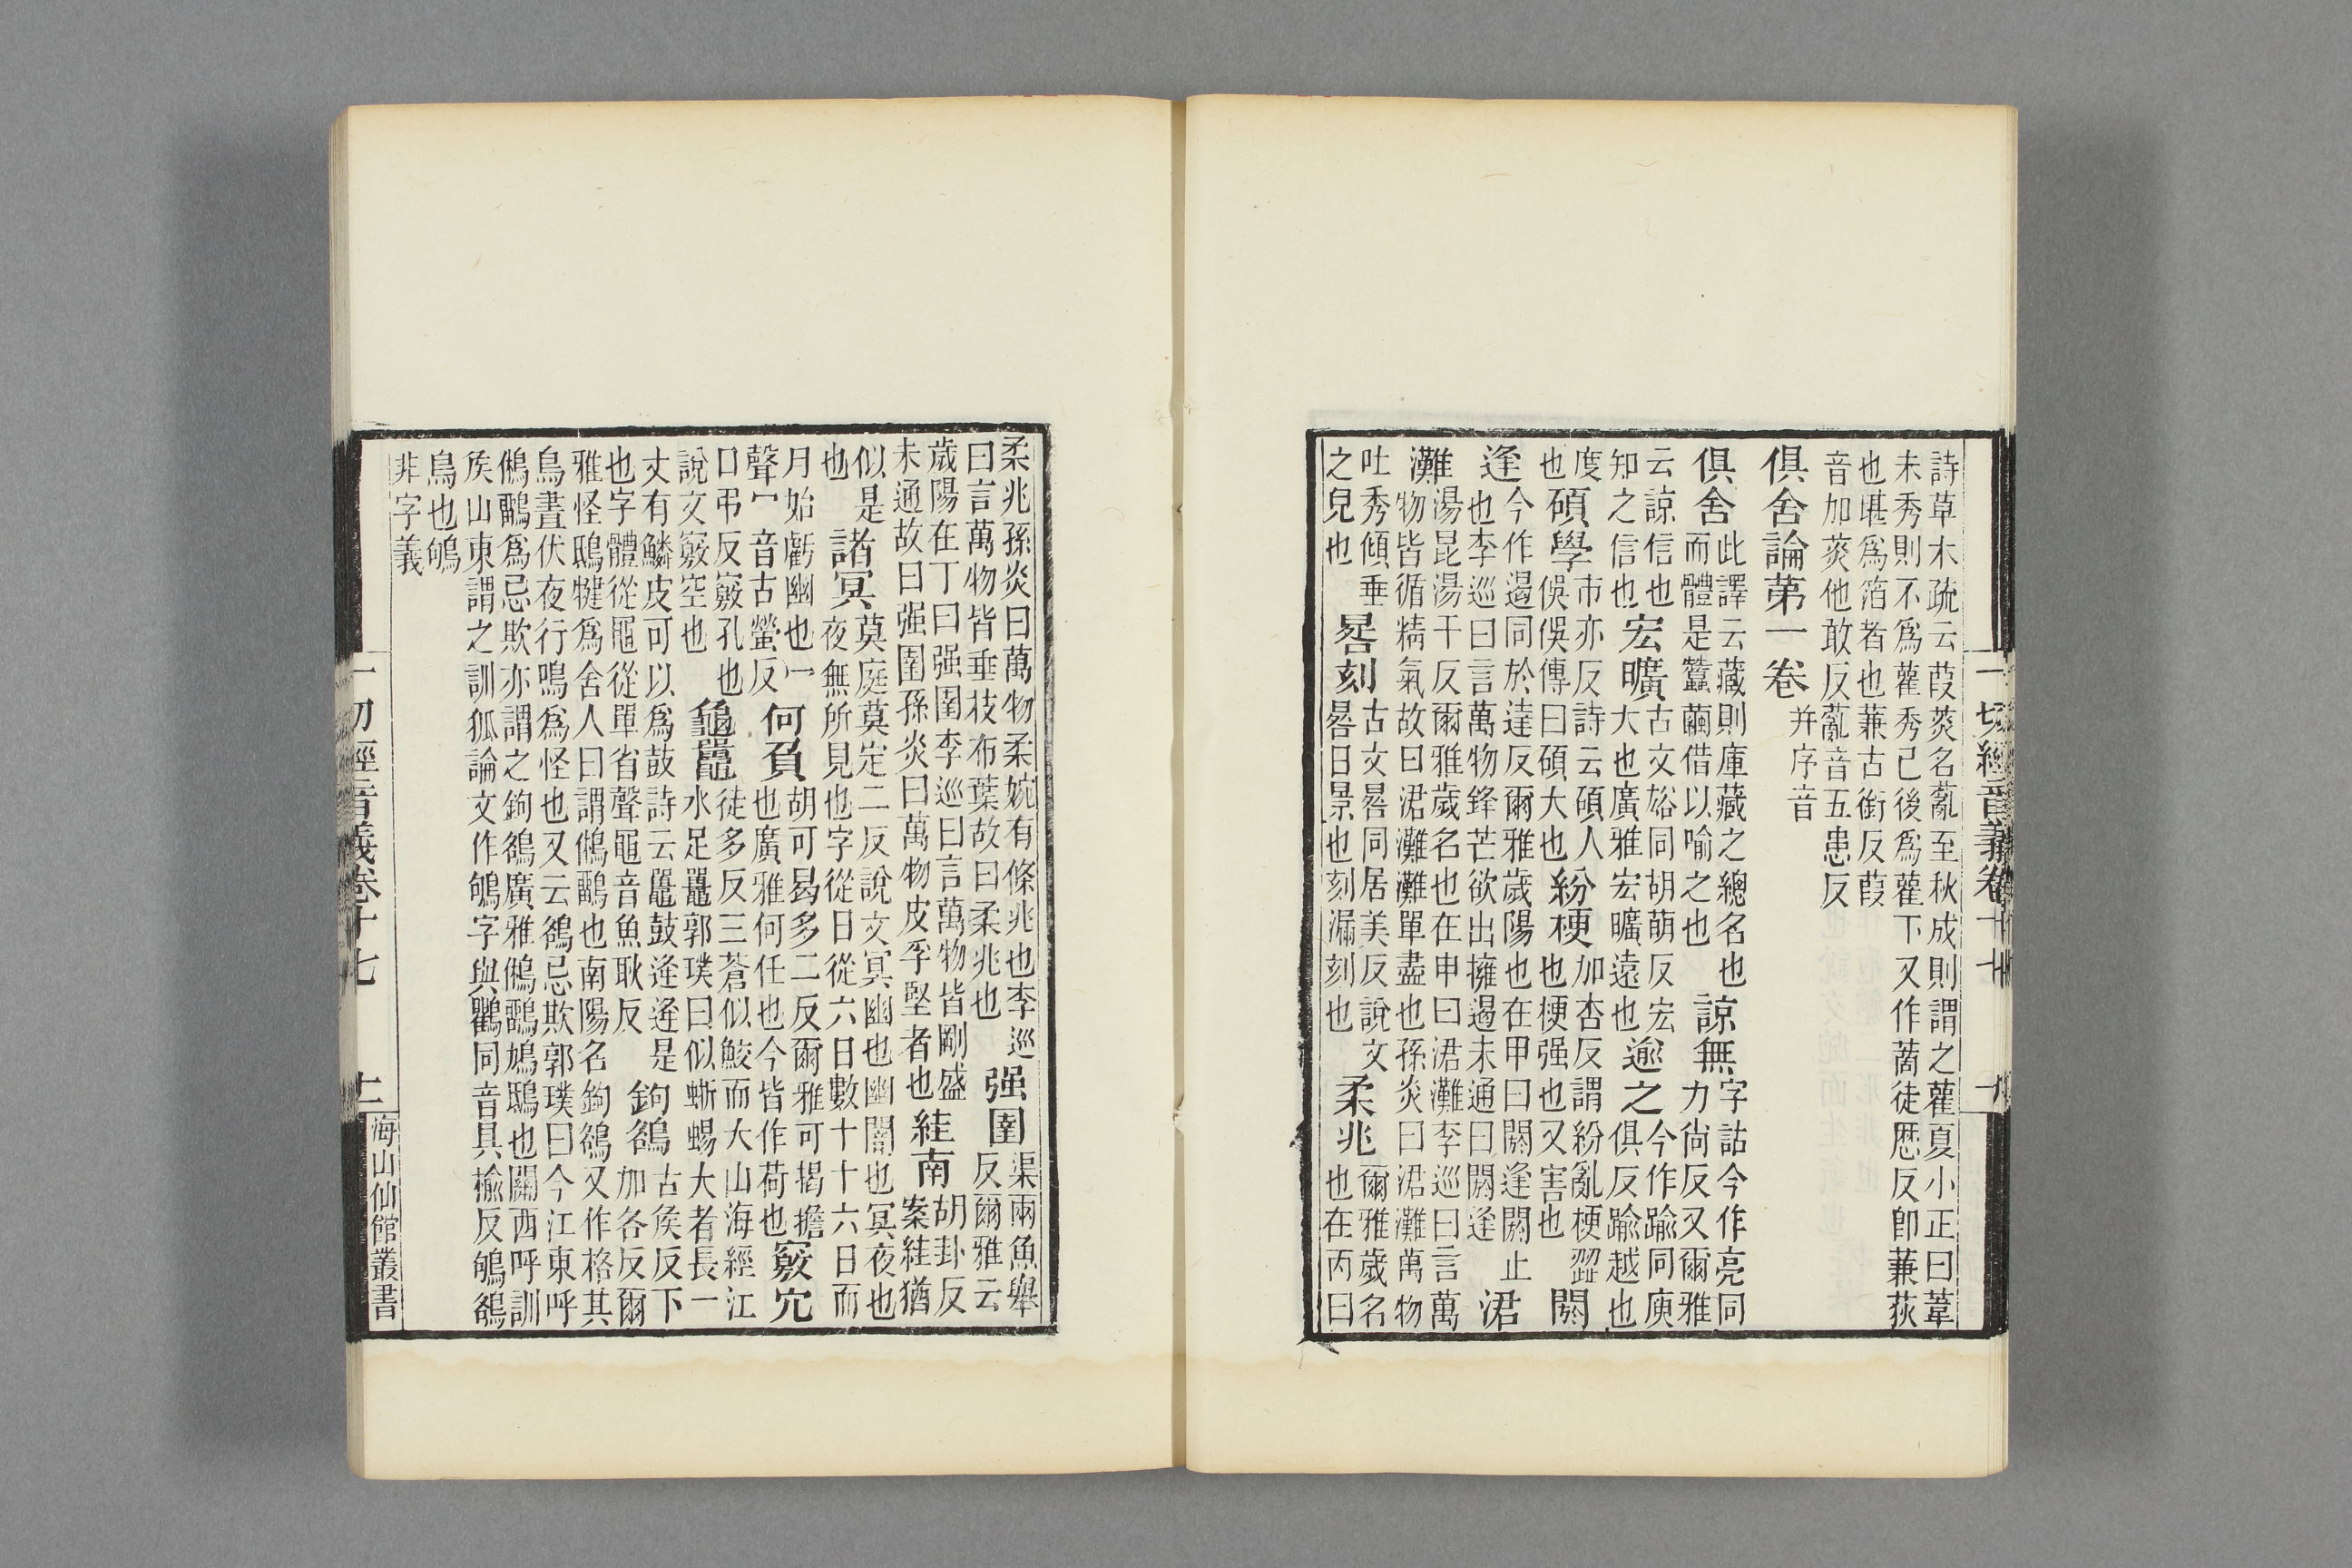 一切經音義卷十七　十
詩草木疏云葭菼名薍至秋成則謂之雚夏小正曰葦未秀則不爲雚秀已後爲雚下又作藡徒厯反卽蒹荻
也堪爲箔者也蒹古銜反葭音加菼他敢反薍音五患反
俱舍論第一卷并序音
俱舍此譯云藏則庫藏之總名也而體是蠶繭借以喻之也諒無字詁今作亮同力尚反又爾雅
云諒信也知之信也宏曠古文同胡萌反宏大也廣雅宏曠遠也逾之今作踰同庾俱反踰越也
度也碩學市亦反詩云碩人俁俁傳曰碩大也紛梗加杏反謂紛亂梗澀也梗强也又害也閼
逢今作遏同於達反爾雅歲陽也在甲曰閼逢閼止也李巡曰言萬物鋒芒欲出擁遏未通曰閼逢涒
灘湯昆湯干反爾雅歲名也在申曰涒灘李巡曰言萬物皆循精氣故曰涒灘灘單盡也孫炎曰涒灘萬物
吐秀傾垂之皃也晷刻古文晷同居美反說文晷日景也刻漏刻也柔兆爾雅歲名也在丙曰
柔兆孫炎曰萬物柔婉有條兆也李巡曰言萬物皆垂枝布葉故曰柔兆也强圉渠兩魚舉反爾雅云
歲陽在丁曰强圉李巡曰言萬物皆剛盛未通故曰强圉孫炎曰萬物皮孚堅者也絓南胡卦反案絓猶
似是也諸冥莫庭莫定二反說文冥幽也幽闇也冥夜也夜無所見也字從日從六日數十十六日而
月始虧幽也冖聲冖音古螢反何負胡可曷多二反爾雅可揭擔也廣雅何任也今皆作荷也竅穴
口弔反竅孔也說文竅空也龜鼉徒多反三蒼似鮫而大山海經江水足鼉郭璞曰似蜥蜴大者長一
丈有鱗皮可以爲鼓詩云鼉鼓逄逄是也字體從黽從單省聲黽音魚耿反鉤鵅古矦反下加各反爾
雅怪鴟犍爲舍人曰謂鵂鶹也南陽名鉤鵅又作格其鳥晝伏夜行鳴爲怪也又云鵅忌欺郭璞曰今江東呼
鵂鶹爲忌欺亦謂之鉤鵅廣雅鵂鶹鳩鴟也關西呼訓矦山東謂之訓狐論文作鴝字與鸜同音具榆反鴝鵅
鳥也鴝非字義
一切經音義卷十七　十一
海山仙館叢書